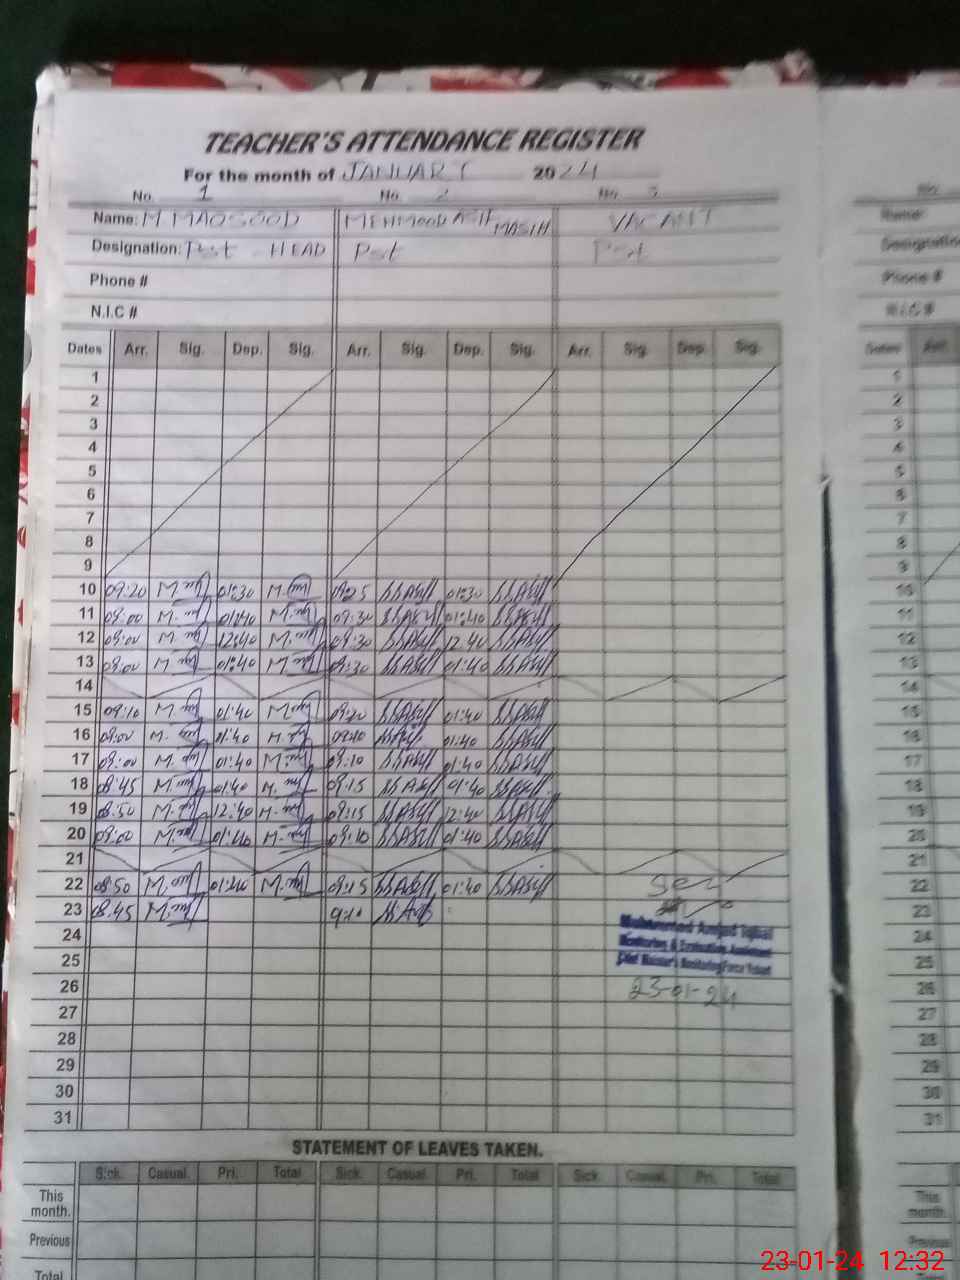 TEACHER'S ATTENDANCE REGISTER
For the month of JANUARY 2024
No. 1 No. 2 No. 3
Name: M. MAQSOOD MEHMOOD ASIF MASIH VACANT
Designation: Pst - HEAD Pst Pst
Phone #
N.I.C #
Dates Arr. Sig. Dep. Sig. Arr. Sig. Dep. Sig. Arr. Sig. Dep. Sig.
1
2
3
4
5
6
7
8
9
10 09:20 01:30 09:25 01:30
11 09:00 01:40 09:30 01:40
12 09:00 12:40 09:30 12:40
13 09:00 01:40 09:30 01:40
14
15 09:10 01:40 01:40
16 09:00 01:40 09:10 01:40
17 09:00 01:40 09:10 01:40
18 08:45 01:40 09:15 01:40
19 08:50 12:40 09:15 12:40
20 09:00 01:40 09:10 01:40
21
22 08:50 01:40 09:15 01:40
23 08:45 9:10
24
25
26
27
28
29
30
31
Muhammad Amjad Iqbal
Monitoring & Evaluation Assistant
Chief Minister's Monitoring Force
23-01-24
STATEMENT OF LEAVES TAKEN.
Sick. Casual. Pri. Total Sick. Casual. Pri. Total Sick. Casual. Pri. Total
This month.
Previous
Total
No.
Name:
Designation
Phone #
N.I.C #
Dates Arr.
1
2
3
4
5
6
7
8
9
10
11
12
13
14
15
16
17
18
19
20
21
22
23
24
25
26
27
28
29
30
31
This month.
Previous
Total
23-01-24 12:32